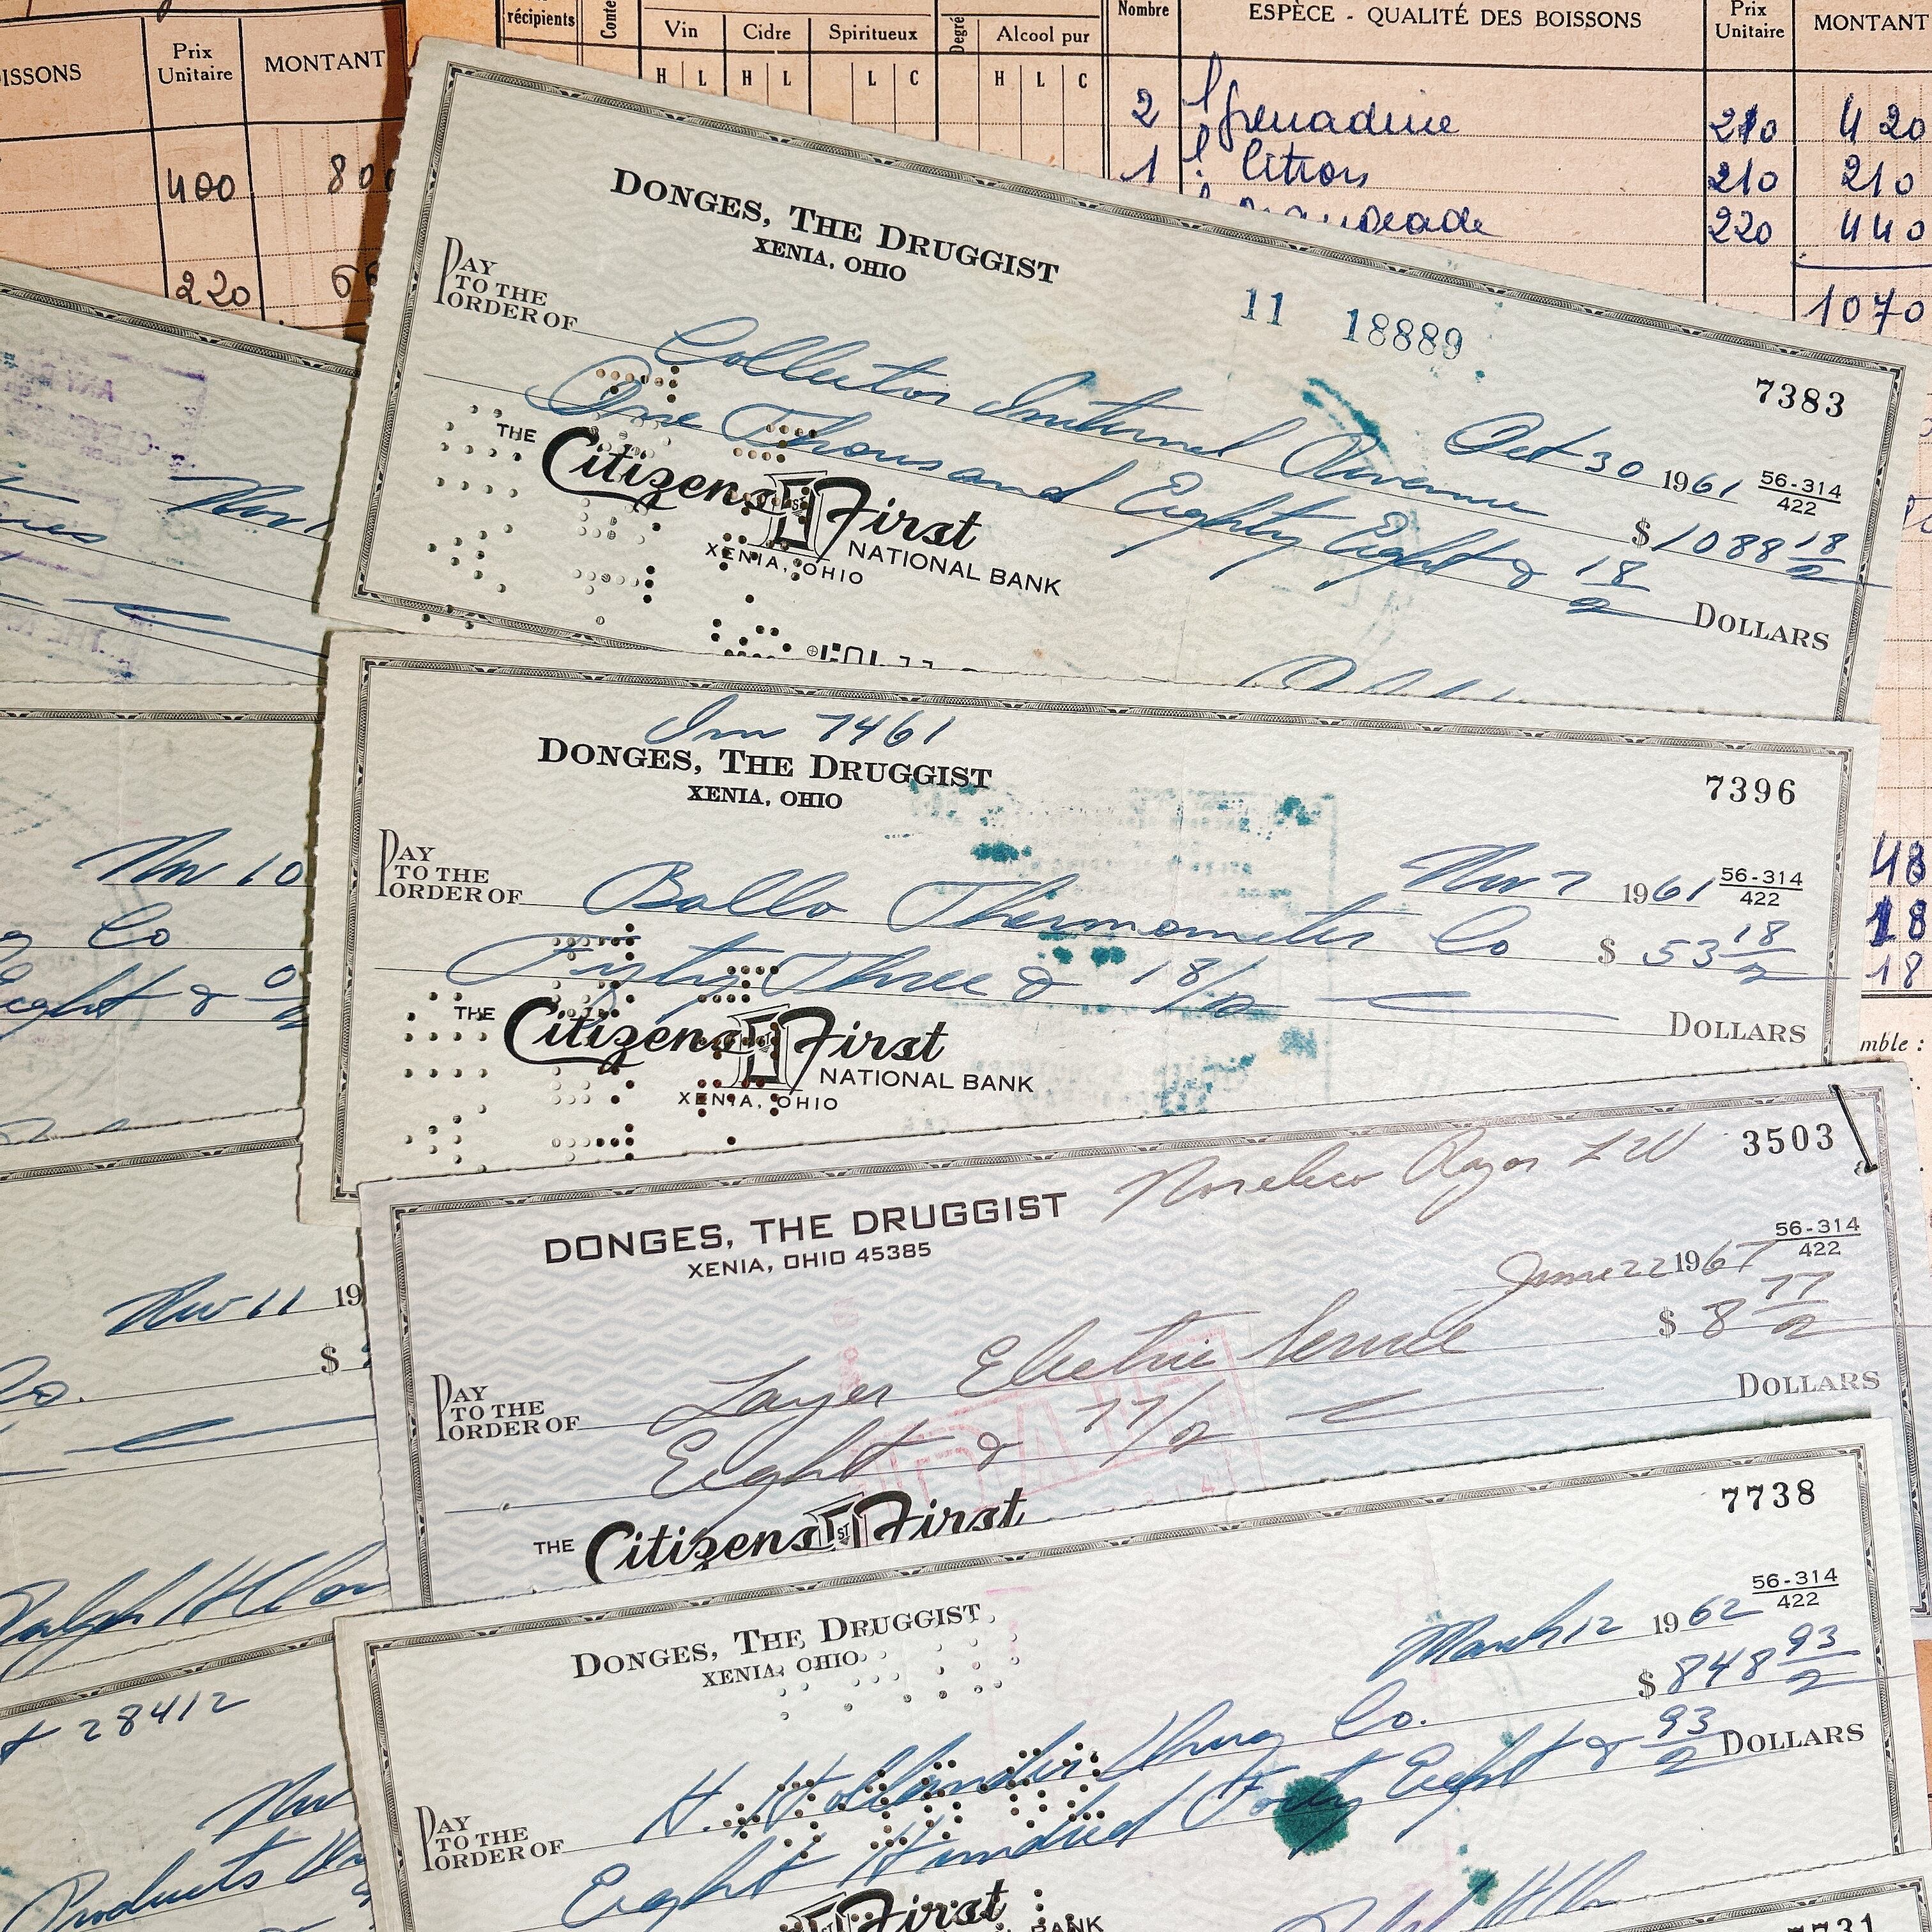 récipients
Vin
Cidre
Spiritueux
Degré
Alcool pur
H L H L L C H L C
Nombre
ESPÈCE - QUALITÉ DES BOISSONS
Prix Unitaire
MONTANT
2 l grenadine 210 420
1 l. citron 210 210
220 440
1070
ISSONS
Prix Unitaire
MONTANT
400 800
220
DONGES, THE DRUGGIST
XENIA, OHIO
11 18889
7383
PAY TO THE ORDER OF
Collector Internal Revenue
Oct 30 1961
56-314
422
$ 1088 18
One Thousand Eighty Eight & 18
DOLLARS
THE Citizens 1ST First
NATIONAL BANK
XENIA, OHIO
Inv 7461
DONGES, THE DRUGGIST
XENIA, OHIO
7396
Nov 7 1961
56-314
422
PAY TO THE ORDER OF
Ballo Thermometer Co
$ 53 18
Fifty Three & 18/
DOLLARS
THE Citizens 1ST First
NATIONAL BANK
XENIA, OHIO
48
18
18
mble :
Norelco Razor
3503
DONGES, THE DRUGGIST
XENIA, OHIO 45385
56-314
422
June 22 1967
$ 8 77
PAY TO THE ORDER OF
Layer Electric Service
Eight & 77/
DOLLARS
PAID
THE Citizens 1ST First
7738
DONGES, THE DRUGGIST
XENIA, OHIO
March 12 1962
56-314
422
$ 848 93
PAY TO THE ORDER OF
H. Hollander Drug Co.
Eight Hundred Forty Eight & 93
DOLLARS
First
BANK
7731
Nov 10
Co
Eight & 0
Nov 11 19
$
Co.
Ralph H
28412
Nov
Products